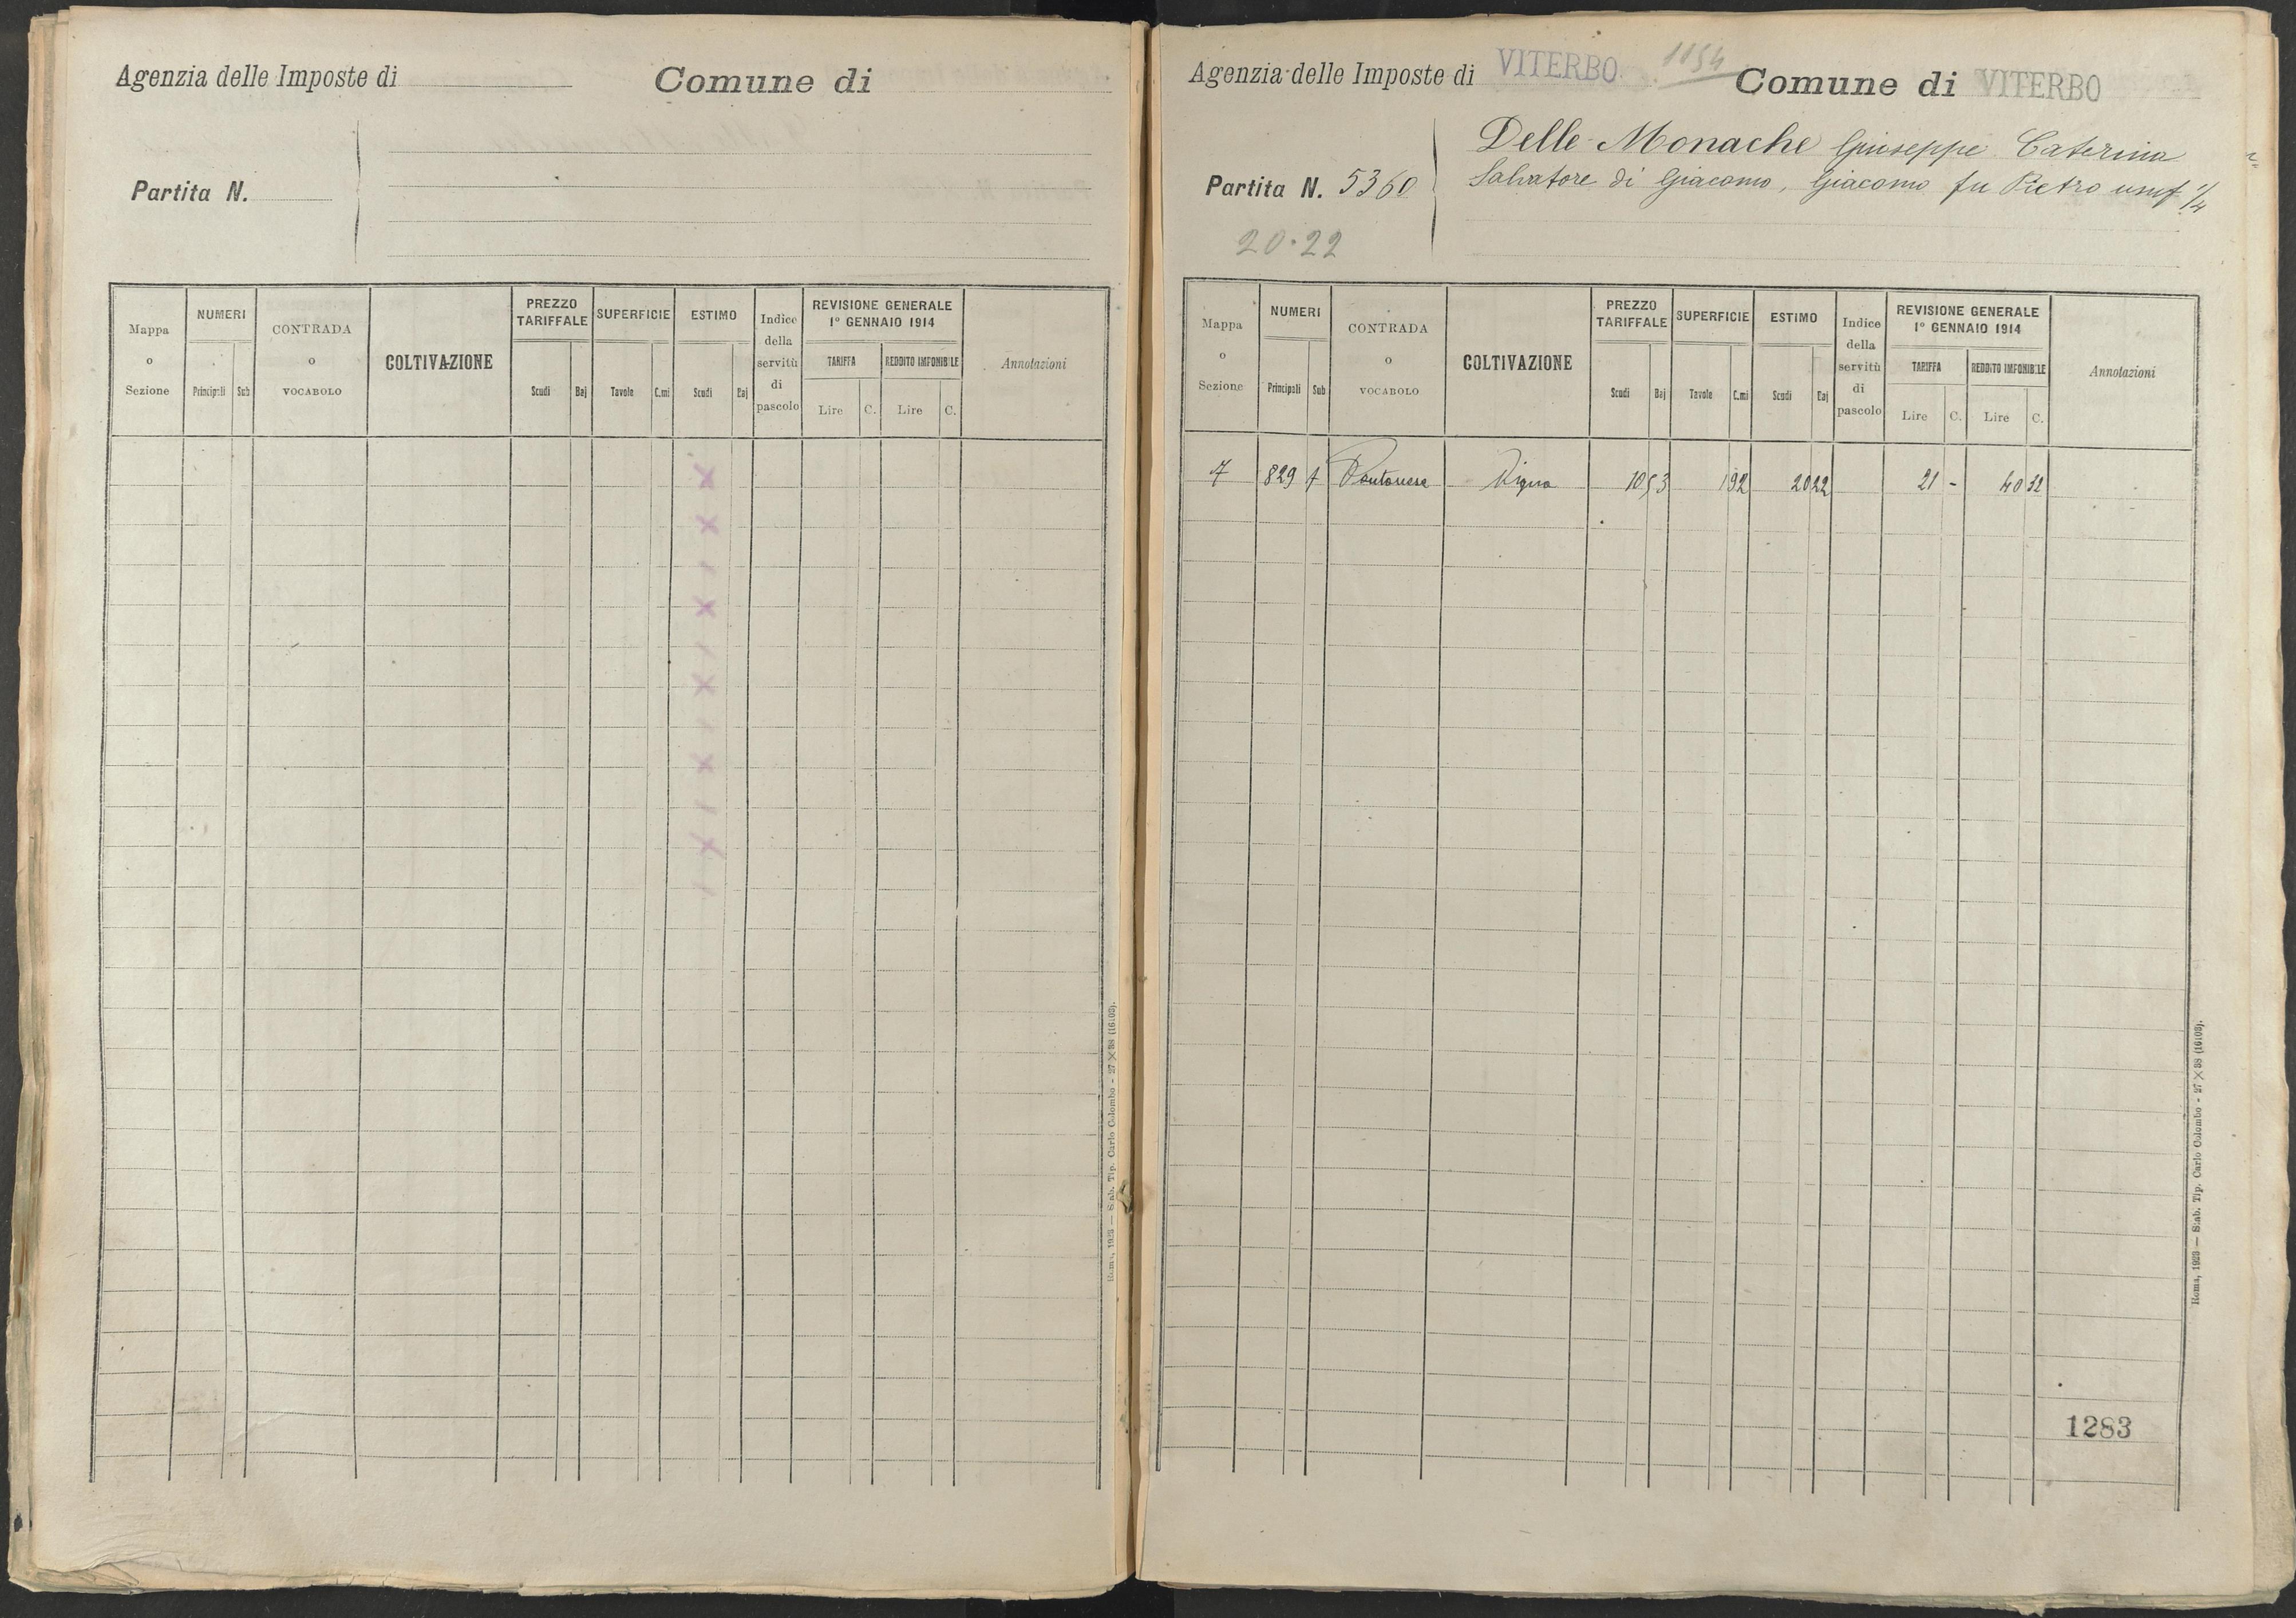 Agenzia delle Imposte di
Comune di
Partita N.
Mappa o Sezione
NUMERI
Principali
Sub
CONTRADA o VOCABOLO
COLTIVAZIONE
PREZZO TARIFFALE
Scudi
Baj
SUPERFICIE
Tavole
C.mi
ESTIMO
Scudi
Baj
Indice della servitù di pascolo
REVISIONE GENERALE
1° GENNAIO 1914
TARIFFA
Lire
C.
REDDITO IMPONIBILE
Lire
C.
Annotazioni
Roma, 1923 — Stab. Tip. Carlo Colombo - 27 X 38 (16103).
Agenzia delle Imposte di VITERBO
1154
Comune di VITERBO
Partita N. 5360
Delle Monache Giuseppe Caterina
Salvatore di Giacomo, Giacomo fu Pietro usuf 1/4
20.22
Mappa o Sezione
NUMERI
Principali
Sub
CONTRADA o VOCABOLO
COLTIVAZIONE
PREZZO TARIFFALE
Scudi
Baj
SUPERFICIE
Tavole
C.mi
ESTIMO
Scudi
Baj
Indice della servitù di pascolo
REVISIONE GENERALE
1° GENNAIO 1914
TARIFFA
Lire
C.
REDDITO IMPONIBILE
Lire
C.
Annotazioni
7 829 Vigna 10 53 1 92 20 22 21 - 40 32
Roma, 1923 — Stab. Tip. Carlo Colombo - 27 X 38 (16103).
1283